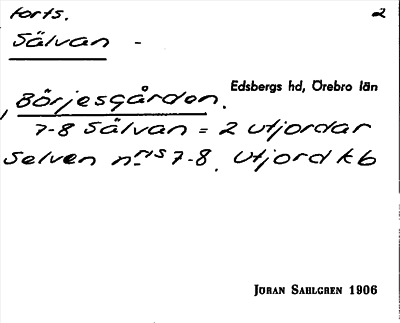 forts. 2
Sälvan -
Edsbergs hd, Örebro län
, Börjesgården.
7-8 Sälvan = 2 utjordar
Selven n:ris 7-8. Utjord kb
JÖRAN SAHLGREN 1906